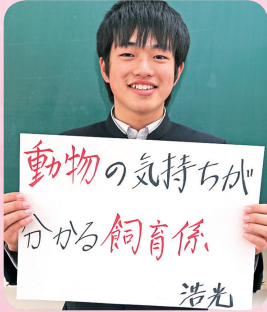 動物の気持ちが
分かる飼育係
浩光